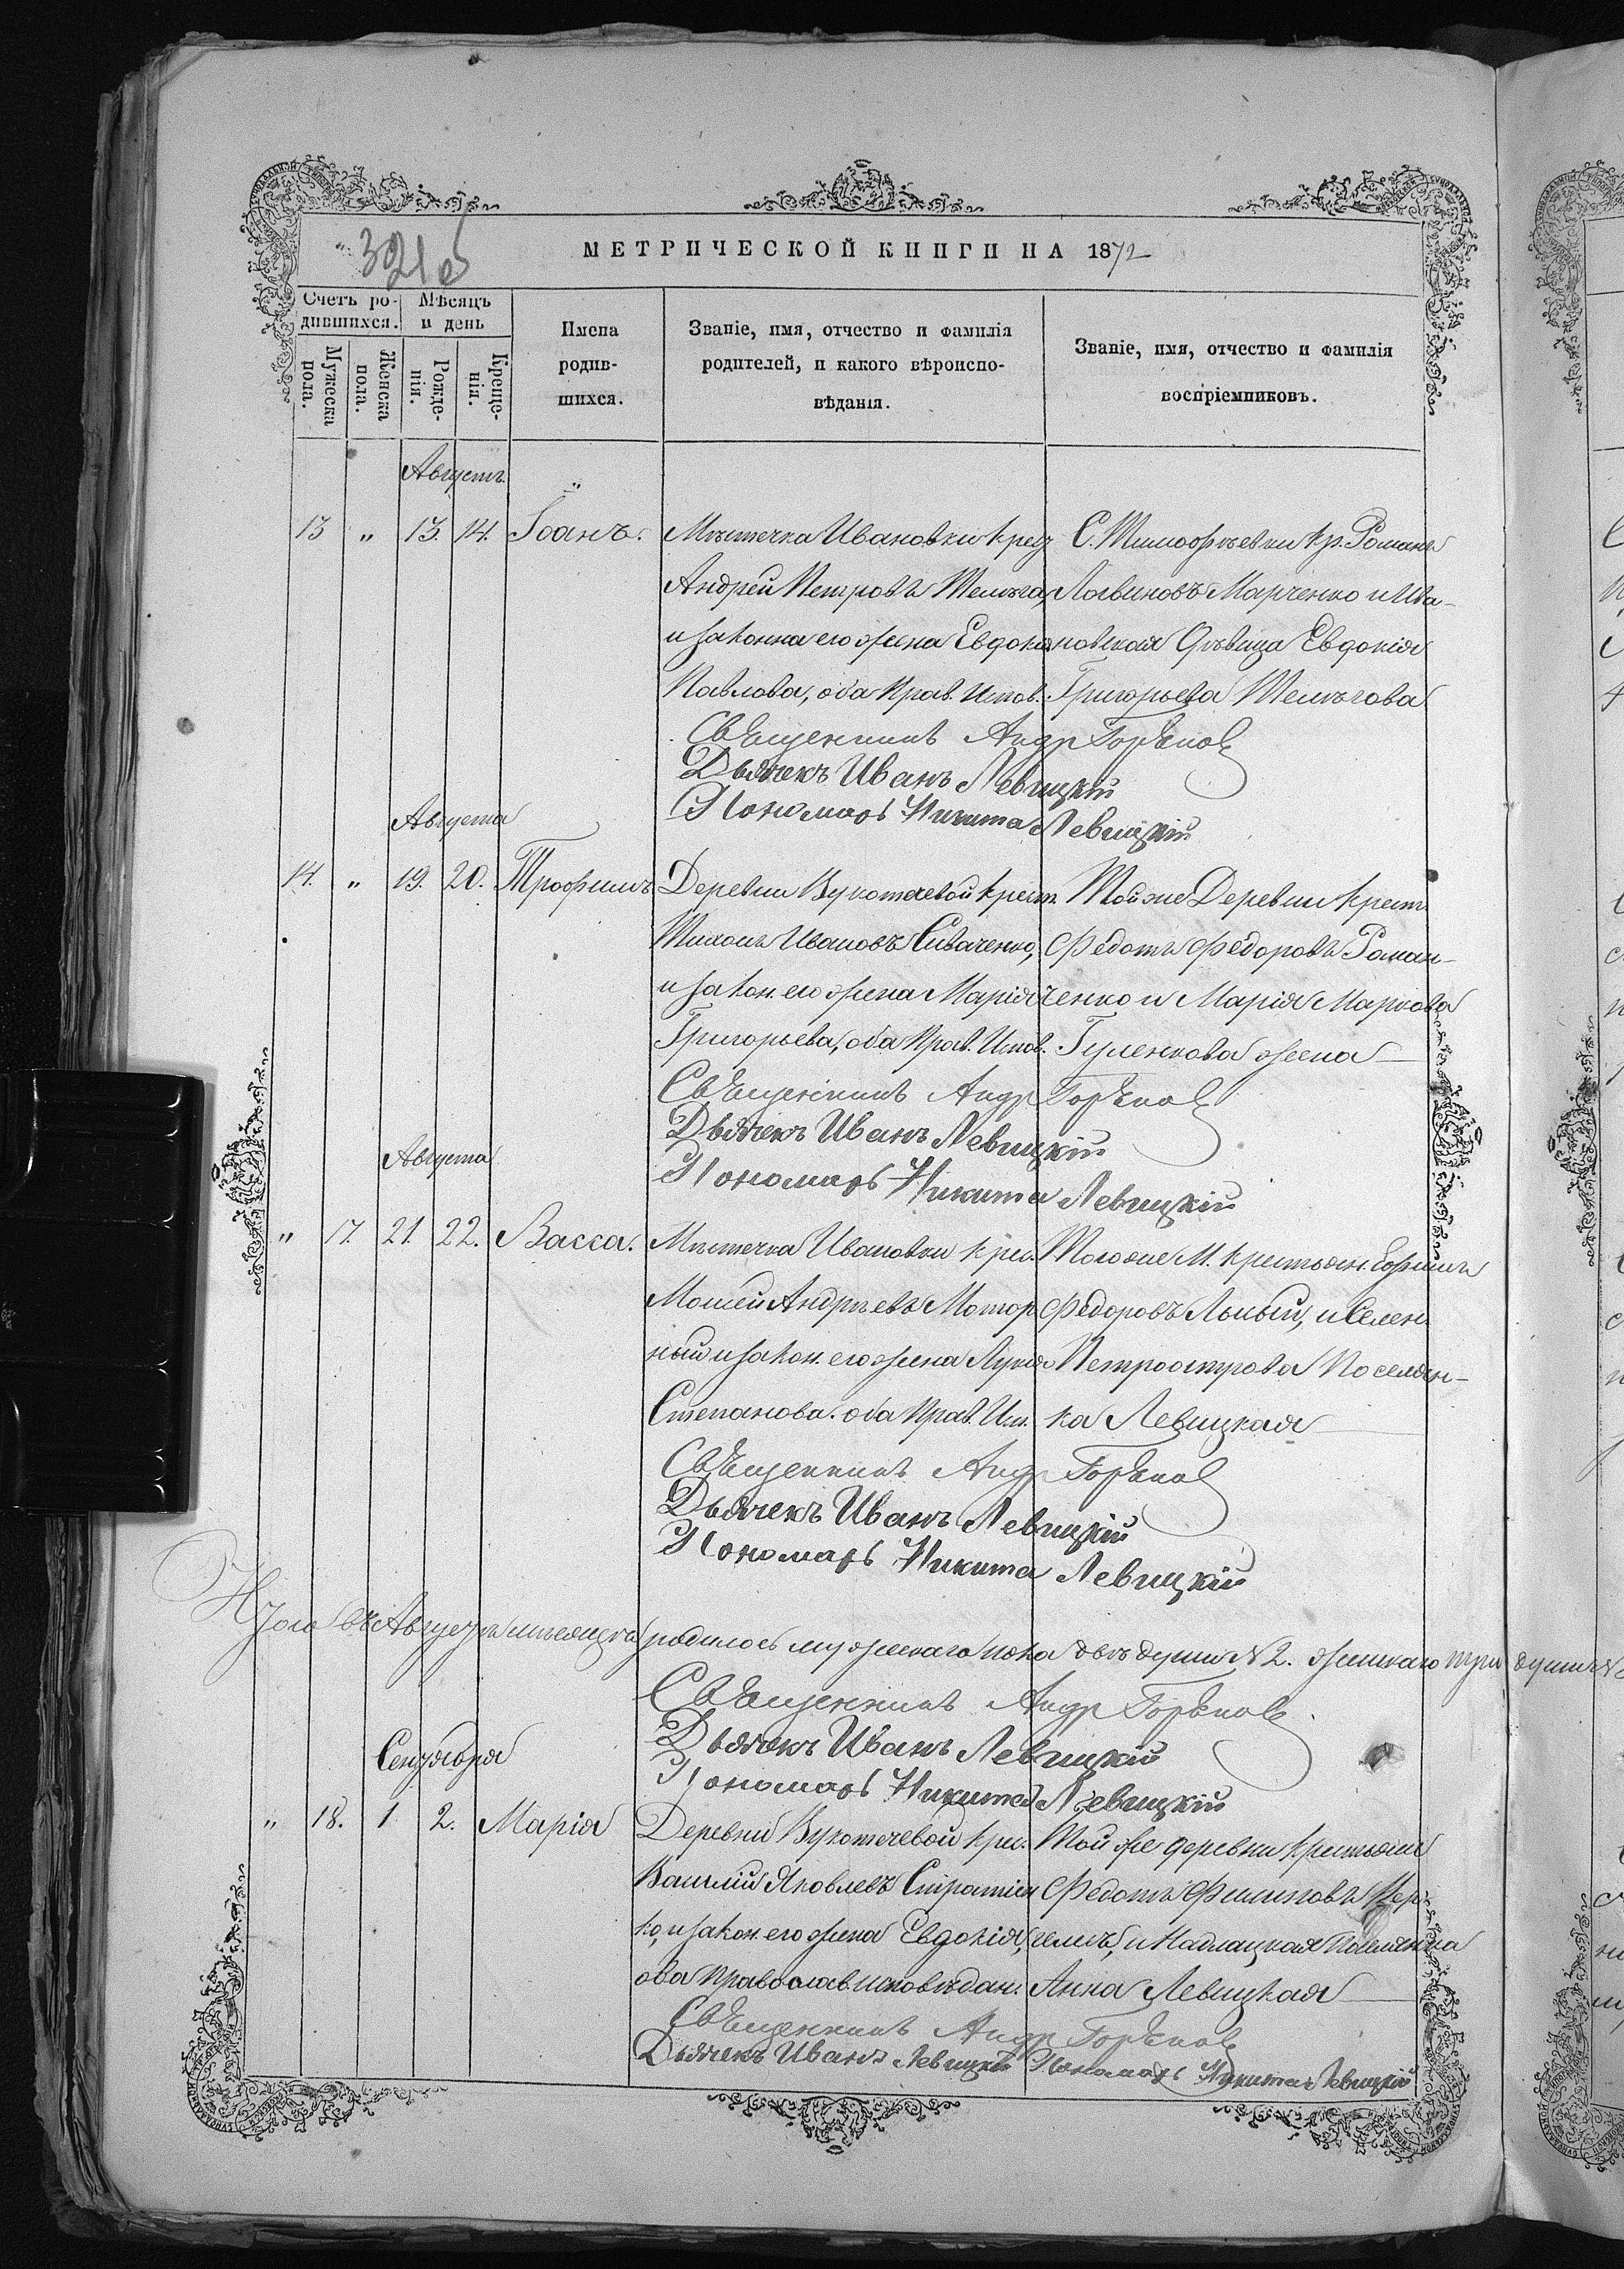 321 об
МЕТРИЧЕСКОЙ КНИГИ НА 1872
Счетъ ро-
дившихся.
Мѣсяцъ
и день
Мужеска
пола.
Женска
пола.
Рожде-
нія.
Креще-
нія.
Имена
родив-
шихся.
Званіе, имя, отчество и фамилія
родителей, и какого вѣроиспо-
вѣданія.
Званіе, имя, отчество и фамилія
воспріемниковъ.
Августъ.
13 " 13. 14. Іоаннъ. Мѣстечка Ивановки крес. С. Тимофѣевки кр. Романъ
Андрей Петровъ Телѣга, Логвиновъ Марченко и Ива-
и законна его жена Евдокія новская Дѣвица Евдокія
Павлова, оба Прав. Испов. Григорьева Телѣгова
Священникъ Андр
Дьячекъ Иванъ Левицкій
Пономарь Никита Левицкій
Августа
14. " 19. 20. Трофимъ Деревни Вукотичевой крест. Той же Деревни Крест.
Тихонъ Ивановъ Сиваченко, Федотъ Федоровъ Роман-
и закон. его жена Марія ченко и Марія Маркова
Григорьева, оба Прав. Испов. Гуленкова жена
Священникъ Андр
Дьячекъ Иванъ Левицкій
Пономарь Никита Левицкій
Августа
" 17. 21. 22. Васса. Мѣстечка Ивановки крес. Того же М. крестьян. Ефимъ
Моисей Андрѣевъ Мотор- Федоровъ Лысый, и Елен.
ный и закон. его жена Лукія Петроострова Поселян-
Степанова. оба Прав. Исп. ка Левицкая
Священникъ Андр
Дьячекъ Иванъ Левицкій
Пономарь Никита Левицкій
Итого въ Августѣ мѣсяцѣ родилось мужескаго пола двѣ души № 2. женскаго три души №
Священникъ Андр
Дьячекъ Иванъ Левицкій
Пономарь Никита Левицкій
Сентября
" 18. 1 2. Марія Деревни Вукотичевой крес. Той же деревни крестьянин
Василій Яковлевъ Стратіен- Федотъ Филиповъ
ко, и закон. его жена Евдокія, и Надлацкая Поселянка
оба православ. исповѣдан. Анна Левицкая
Священникъ Андр
Дьячекъ Иванъ Левицкій Пономарь Никита Левицкій